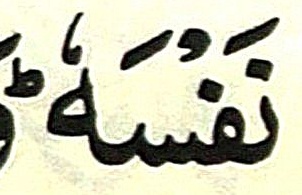 نَفْسَهٗ ؕ